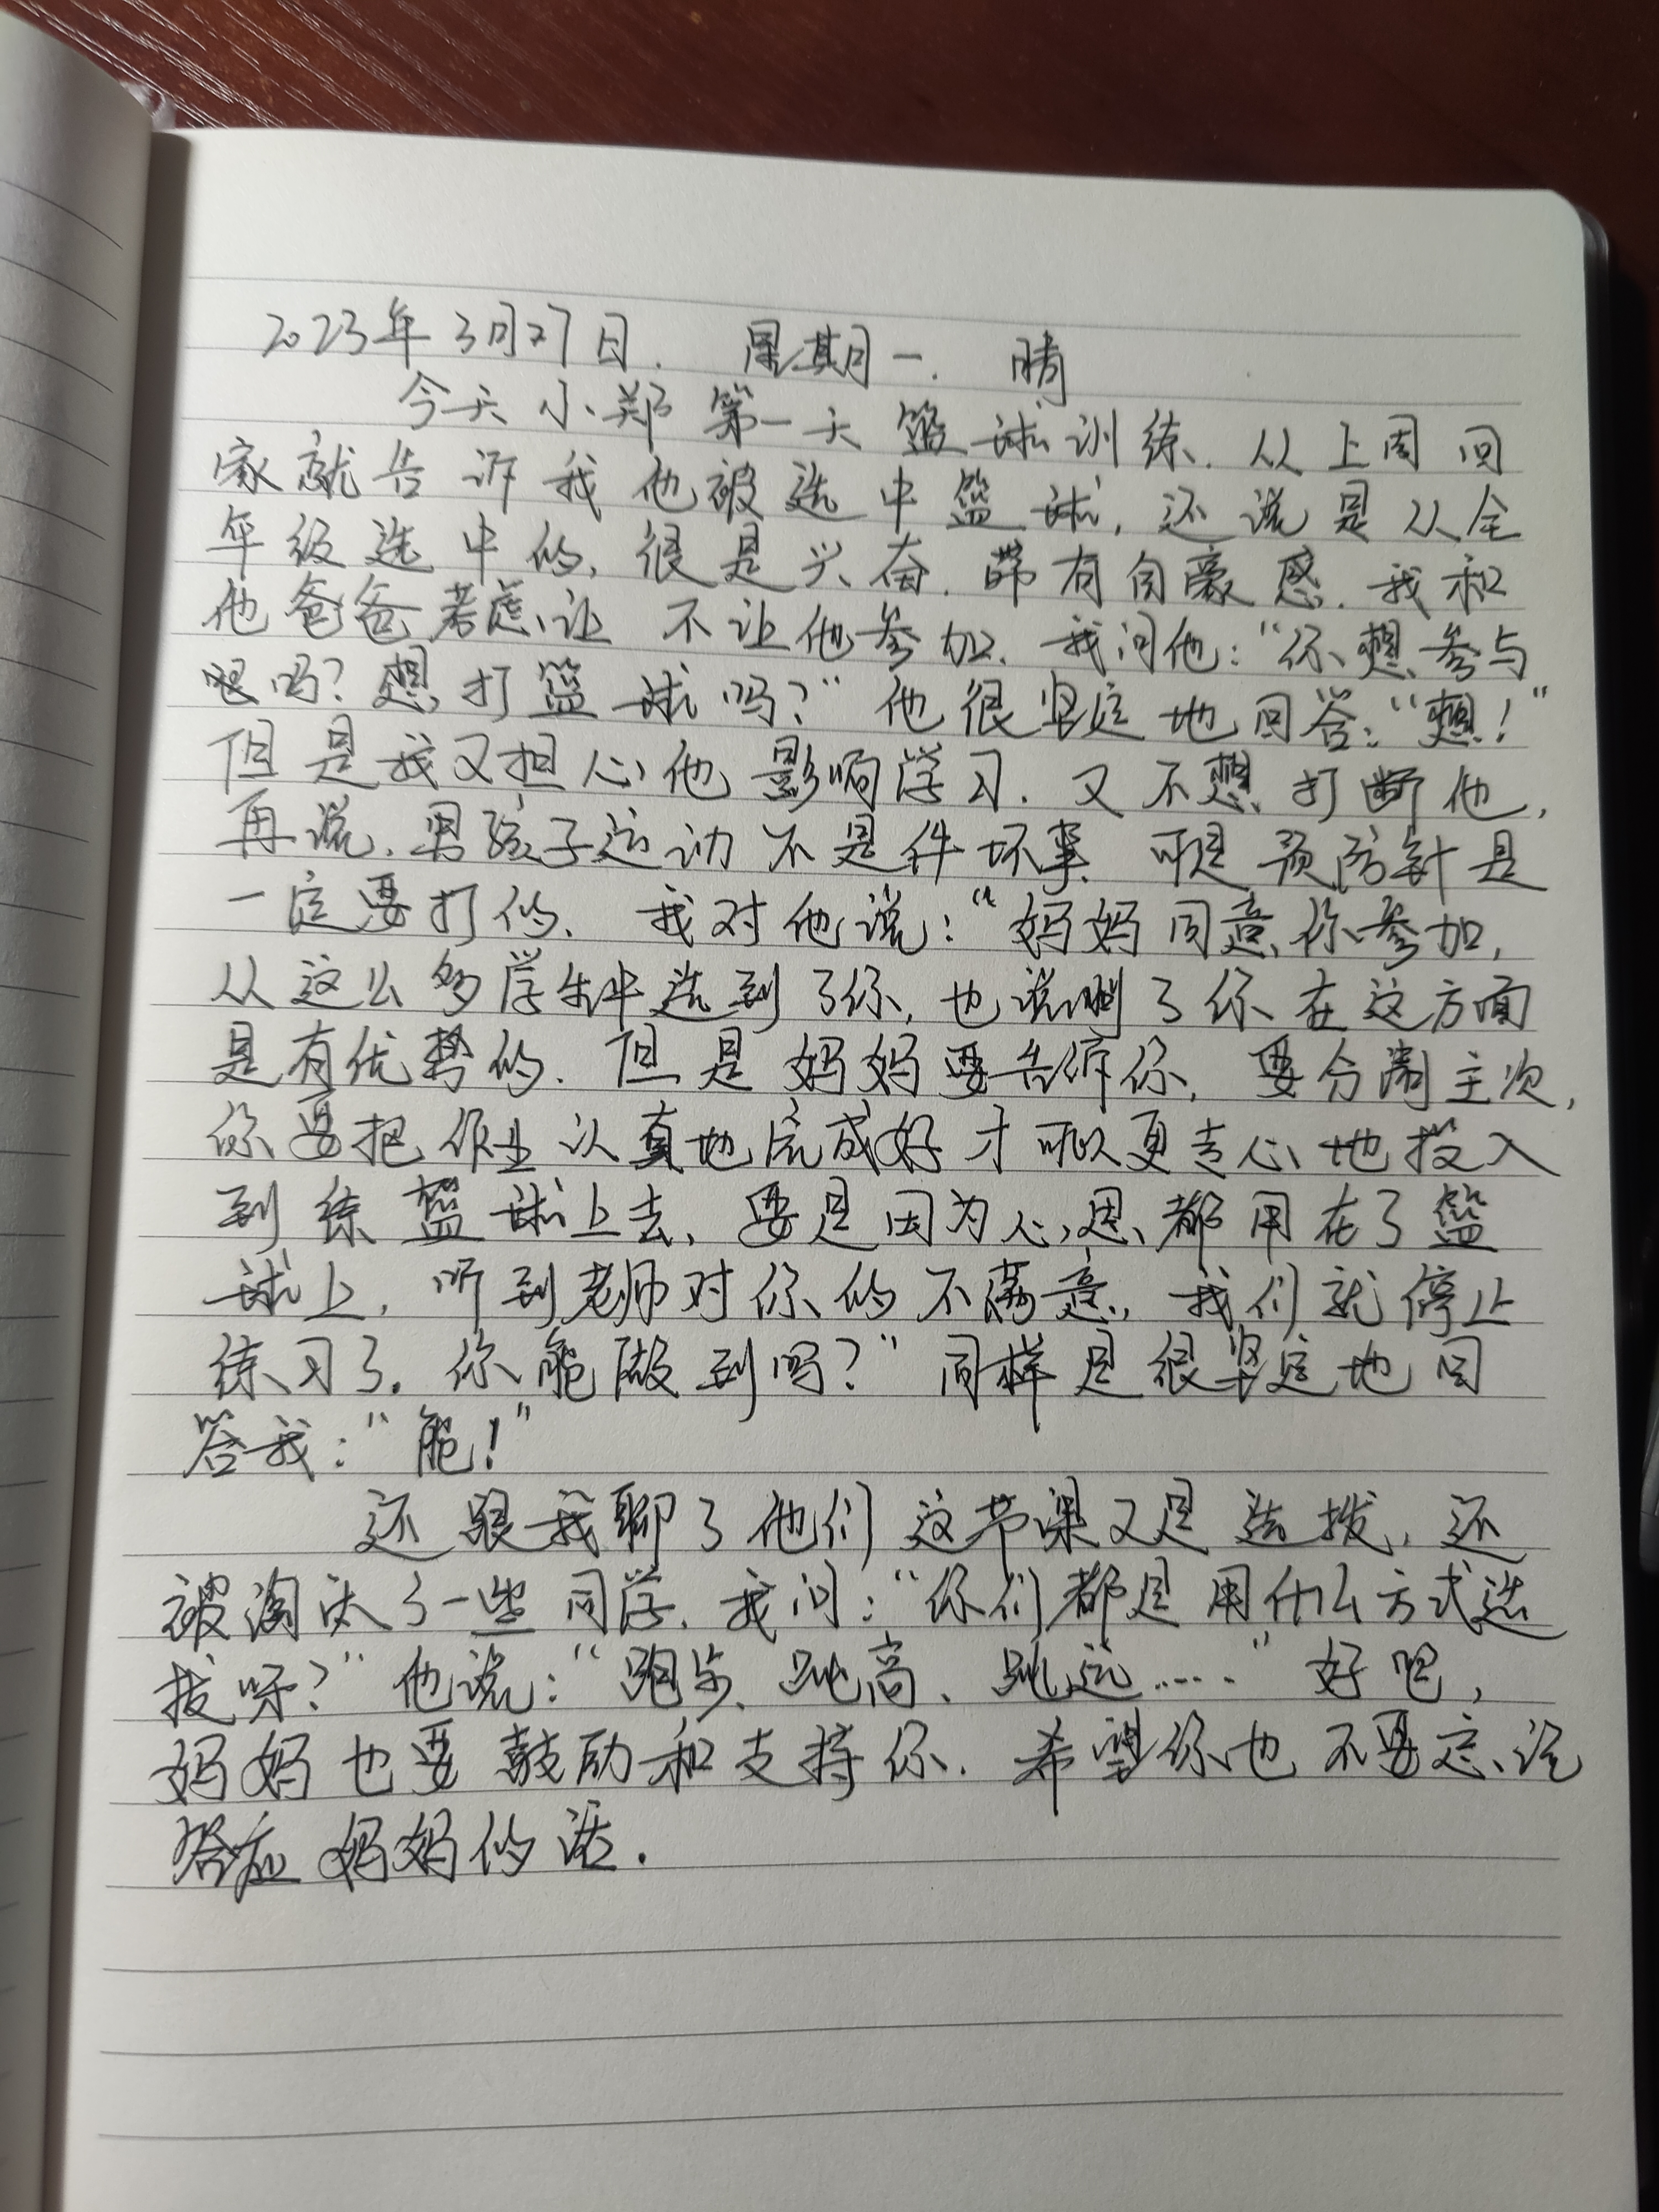 2023年3月27日. 星期一. 晴
今天小郑第一天篮球训练. 从上周回
家就告诉我他被选中篮球, 还说是从全
年级选中的, 很是兴奋. 带有自豪感. 我和
他爸爸考虑让不让他参加. 我问他:“你想参与
吗? 想打篮球吗?”他很坚定地回答:“想!”
但是我又担心他影响学习. 又不想打断他,
再说. 男孩子运动不是件坏事. 可是预防针是
一定要打的. 我对他说:“妈妈同意你参加,
从这么多学生中选到了你, 也说明了你在这方面
是有优势的. 但是妈妈要告诉你, 要分清主次,
你要把作业认真地完成好才可以更专心地投入
到练篮球上去, 要是因为心思都用在了篮
球上, 听到老师对你的不满意, 我们就停止
练习了. 你能做到吗?”同样是很坚定地回
答我:“能!”
还跟我聊了他们这节课又是选拨, 还
被淘汰了一些同学. 我问:“你们都是用什么方式选
拔呀?”他说:“跑步、跳高、跳远……”好吧,
妈妈也要鼓励和支持你. 希望你也不要忘记
答应妈妈的话.